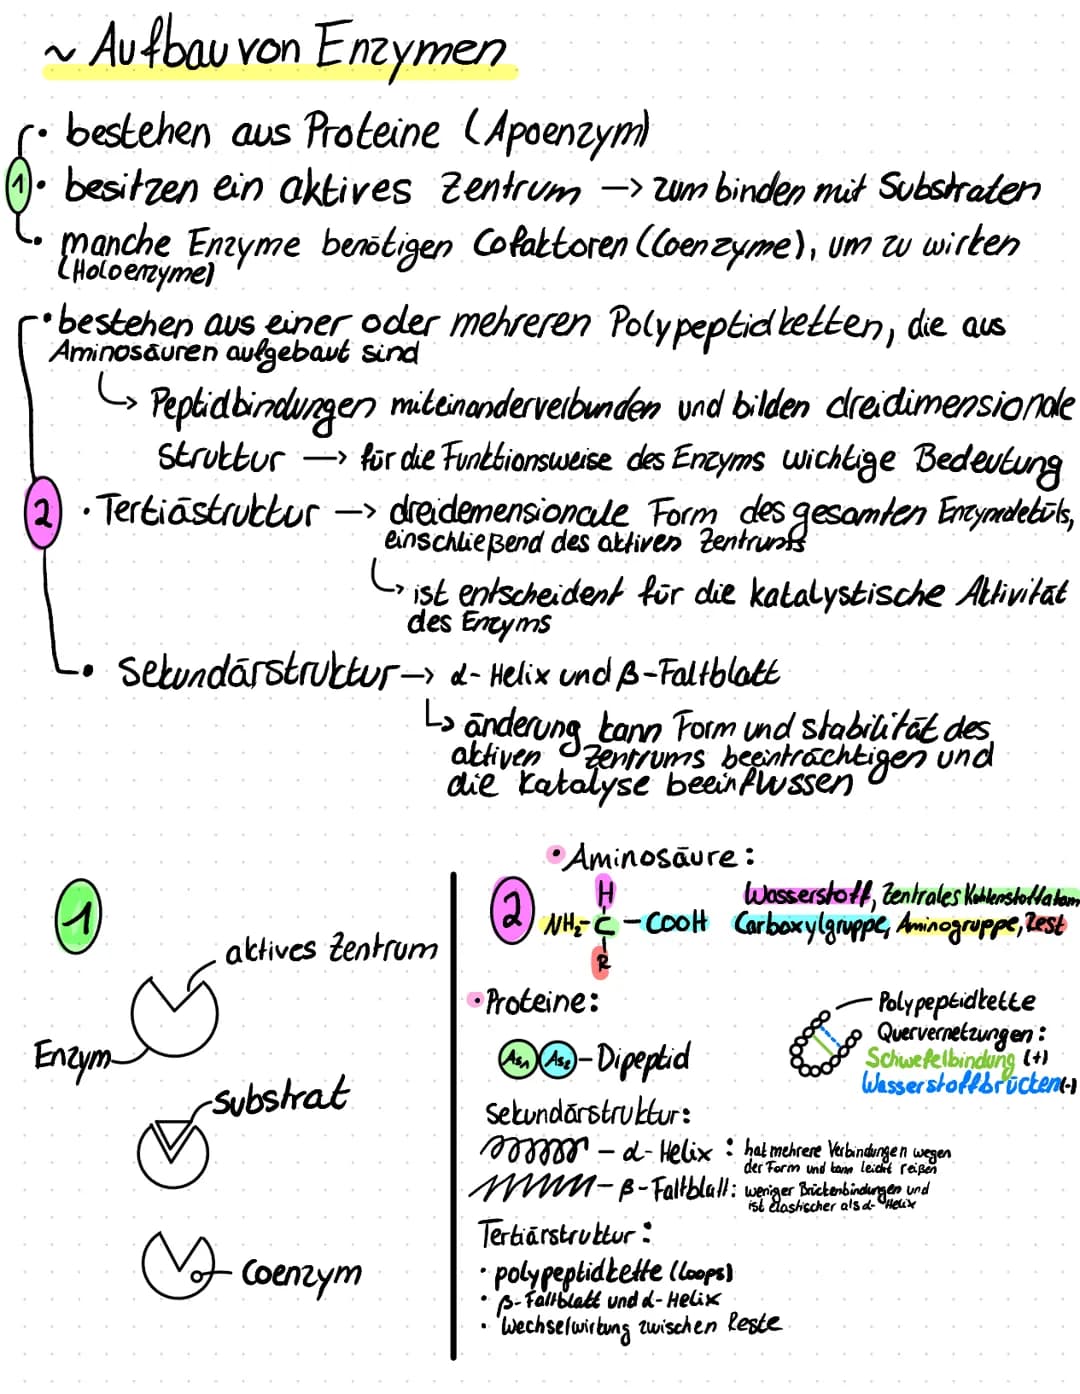 ~ Aufbau von Enzymen
• bestehen aus Proteine (Apoenzym)
1
• besitzen ein aktives Zentrum → zum binden mit Substraten
• manche Enzyme benötigen Cofaktoren (Coenzyme), um zu wirken
(Holoenzyme)
• bestehen aus einer oder mehreren Polypeptidketten, die aus
Aminosäuren aufgebaut sind
↳ Peptidbindungen miteinanderverbunden und bilden dreidimensionale
Struktur → für die Funktionsweise des Enzyms wichtige Bedeutung
2
• Tertiästruktur → dreidemensionale Form des gesamten
einschließend des aktiven Zentrums
↳ ist entscheident für die katalystische Aktivität
des Enzyms
• Sekundärstruktur → α-Helix und β-Faltblatt
↳ änderung kann Form und stabilität des
aktiven Zentrums beeinträchtigen und
die Katalyse beeinflussen
1
aktives Zentrum
Enzym
substrat
Coenzym
2
• Aminosäure:
H
NH₂-C-COOH
R
Wasserstoff, Zentrales Kohlenstoffatom
Carboxylgruppe, Aminogruppe, Rest
• Proteine:
As₁ As₂ - Dipeptid
Polypeptidkette
Quervernetzungen:
Schwefelbindung (+)
Wasserstoffbrücken (-)
Sekundärstruktur:
- α-Helix : hat mehrere Verbindungen wegen
der Form und kann leicht reißen
- β-Faltblatt: weniger Brückenbindungen und
ist elastischer als α-Helix
Tertiärstruktur:
• polypeptidkette (loops)
• β-Faltblatt und α-Helix
• Wechselwirkung zwischen Reste